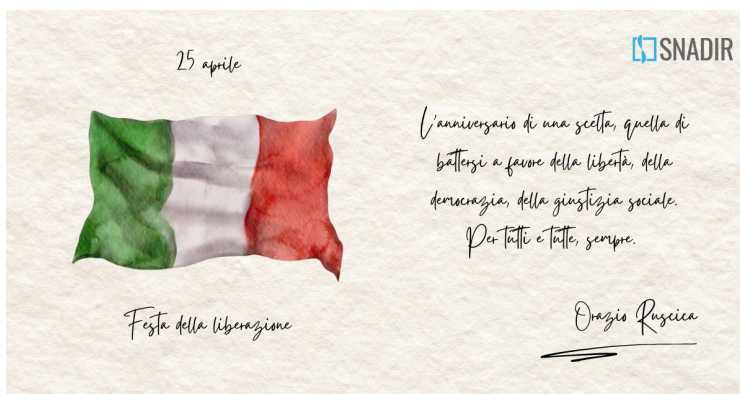 25 aprile
SNADIR
L'anniversario di una scelta, quella di
battersi a favore della libertà, della
democrazia, della giustizia sociale.
Per tutti e tutte, sempre.
Festa della liberazione
Orazio Ruscica